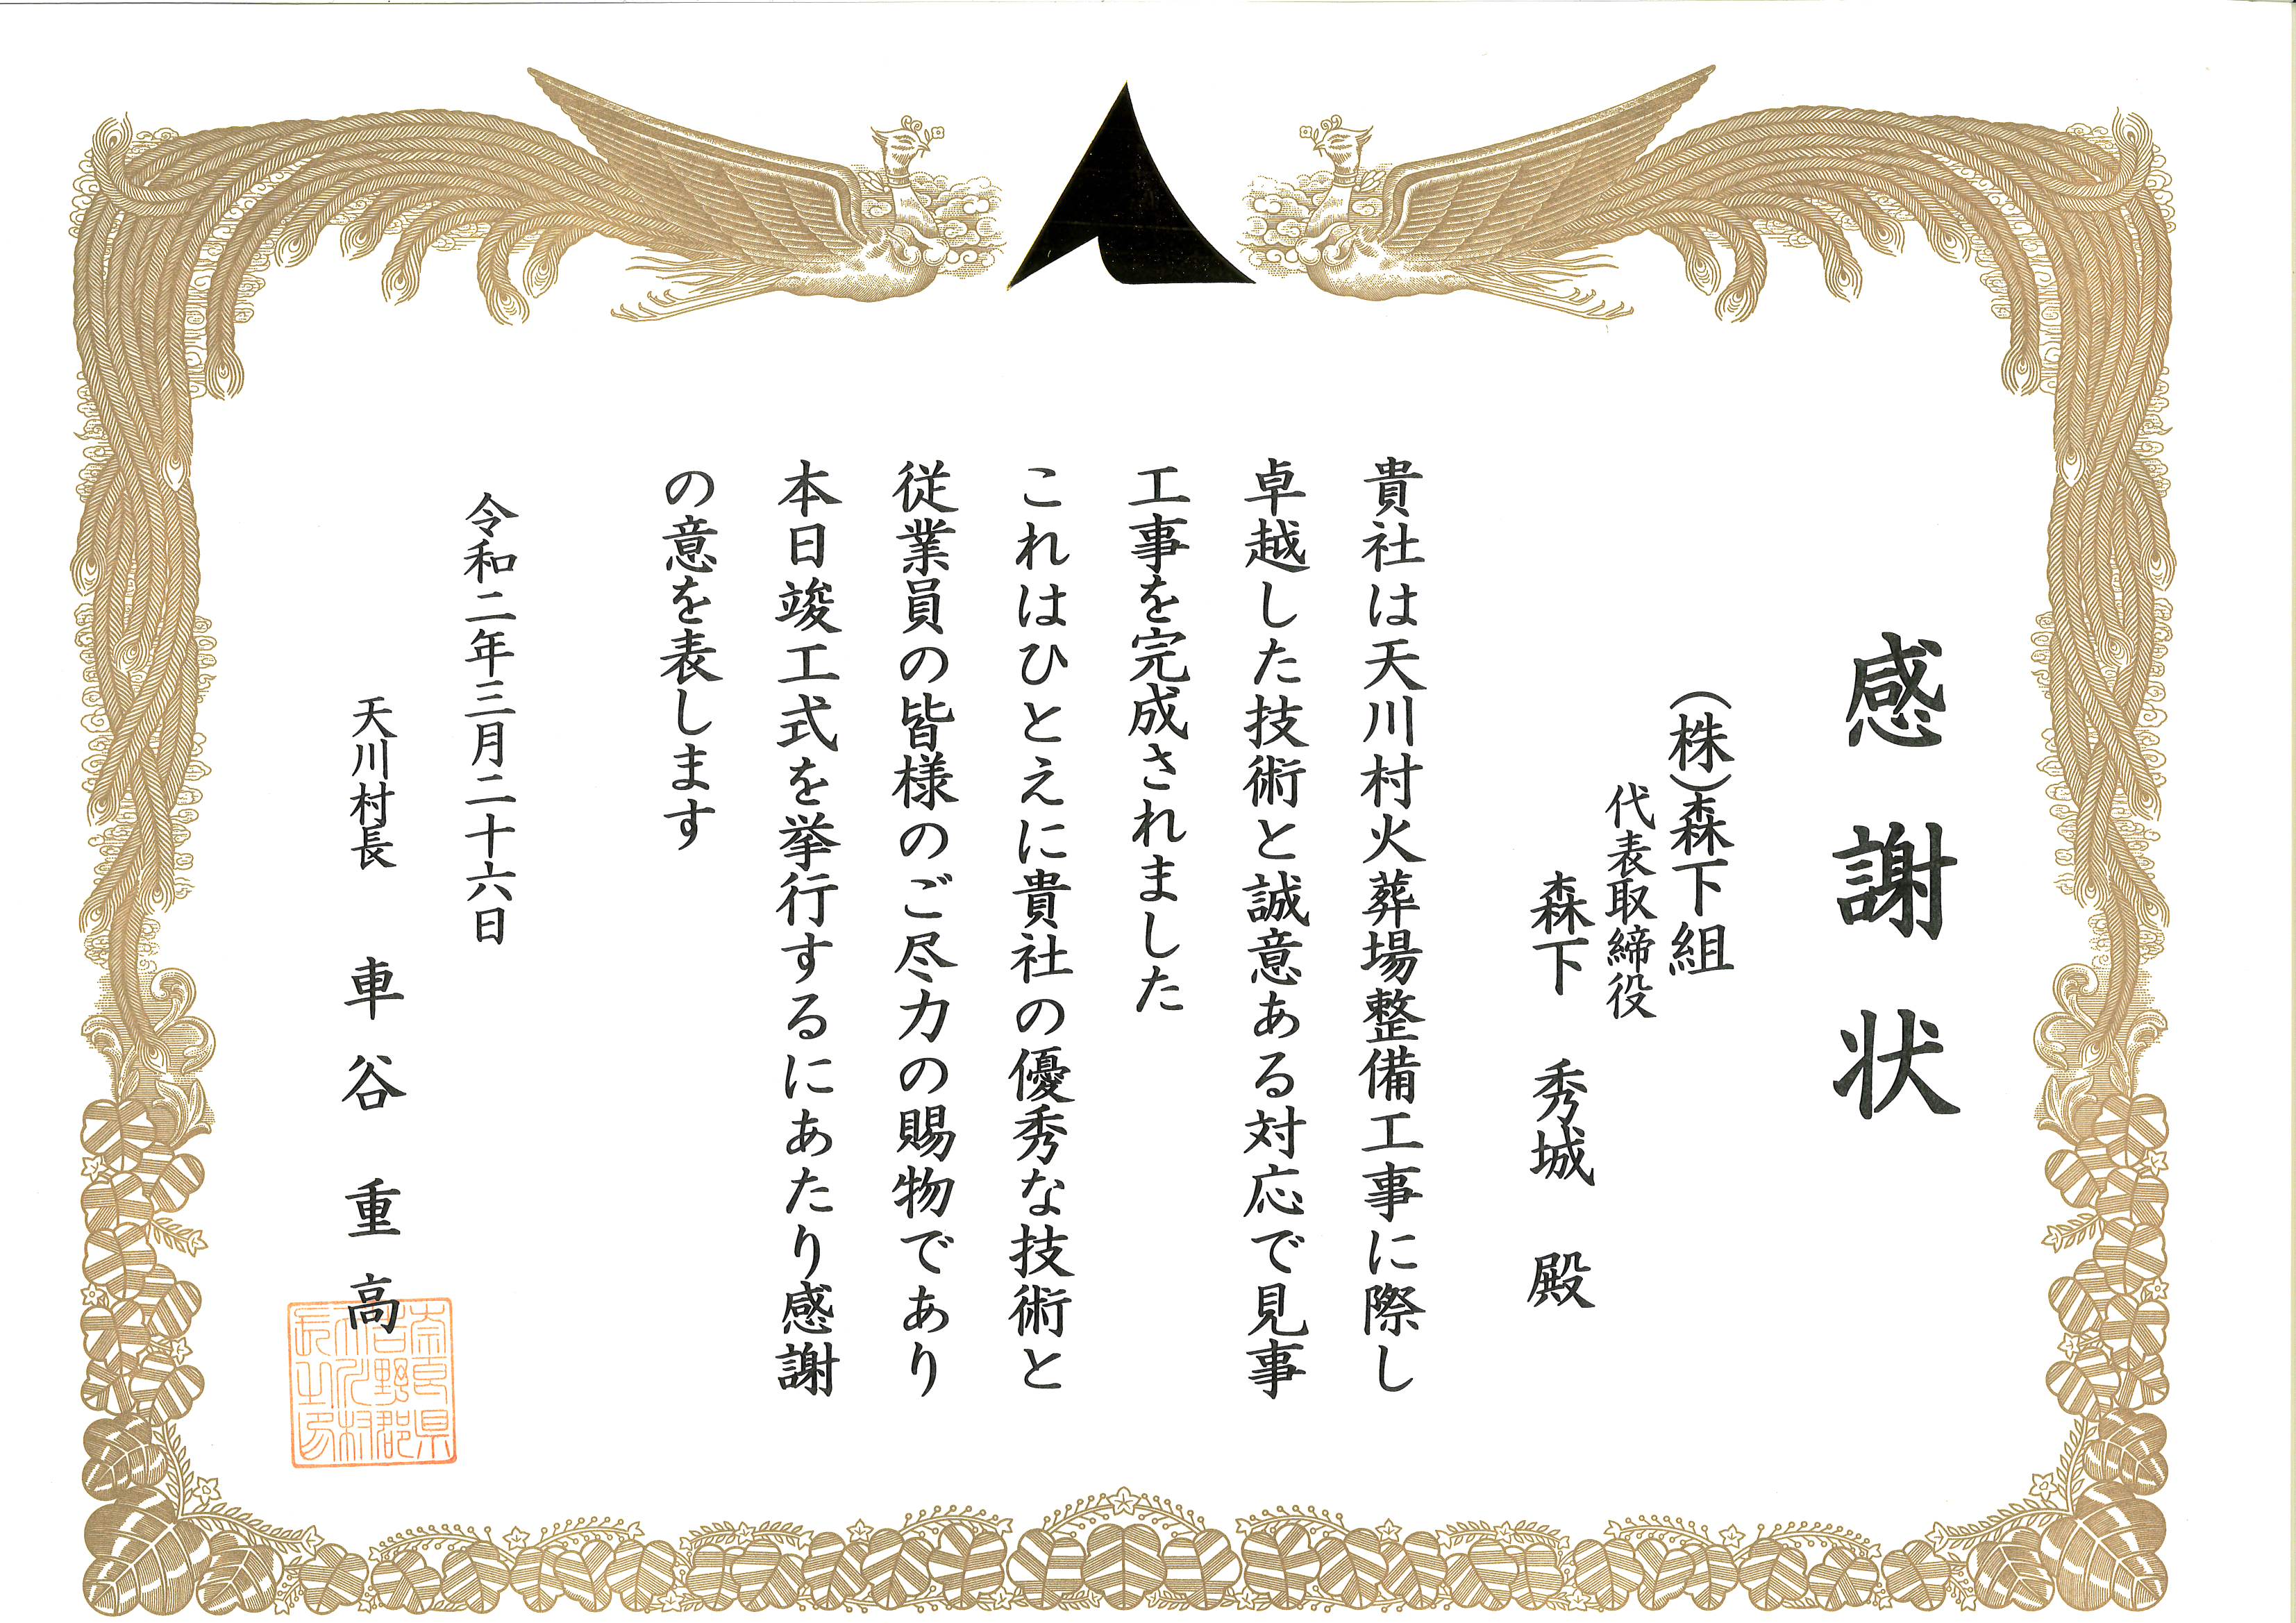 感謝状
(株)森下組
代表取締役
森下 秀城 殿
貴社は天川村火葬場整備工事に際し
卓越した技術と誠意ある対応で見事
工事を完成されました
これはひとえに貴社の優秀な技術と
従業員の皆様のご尽力の賜物であり
本日竣工式を挙行するにあたり感謝
の意を表します
令和二年三月二十六日
天川村長 車谷重高
奈良県
吉野郡
天川村
長之印